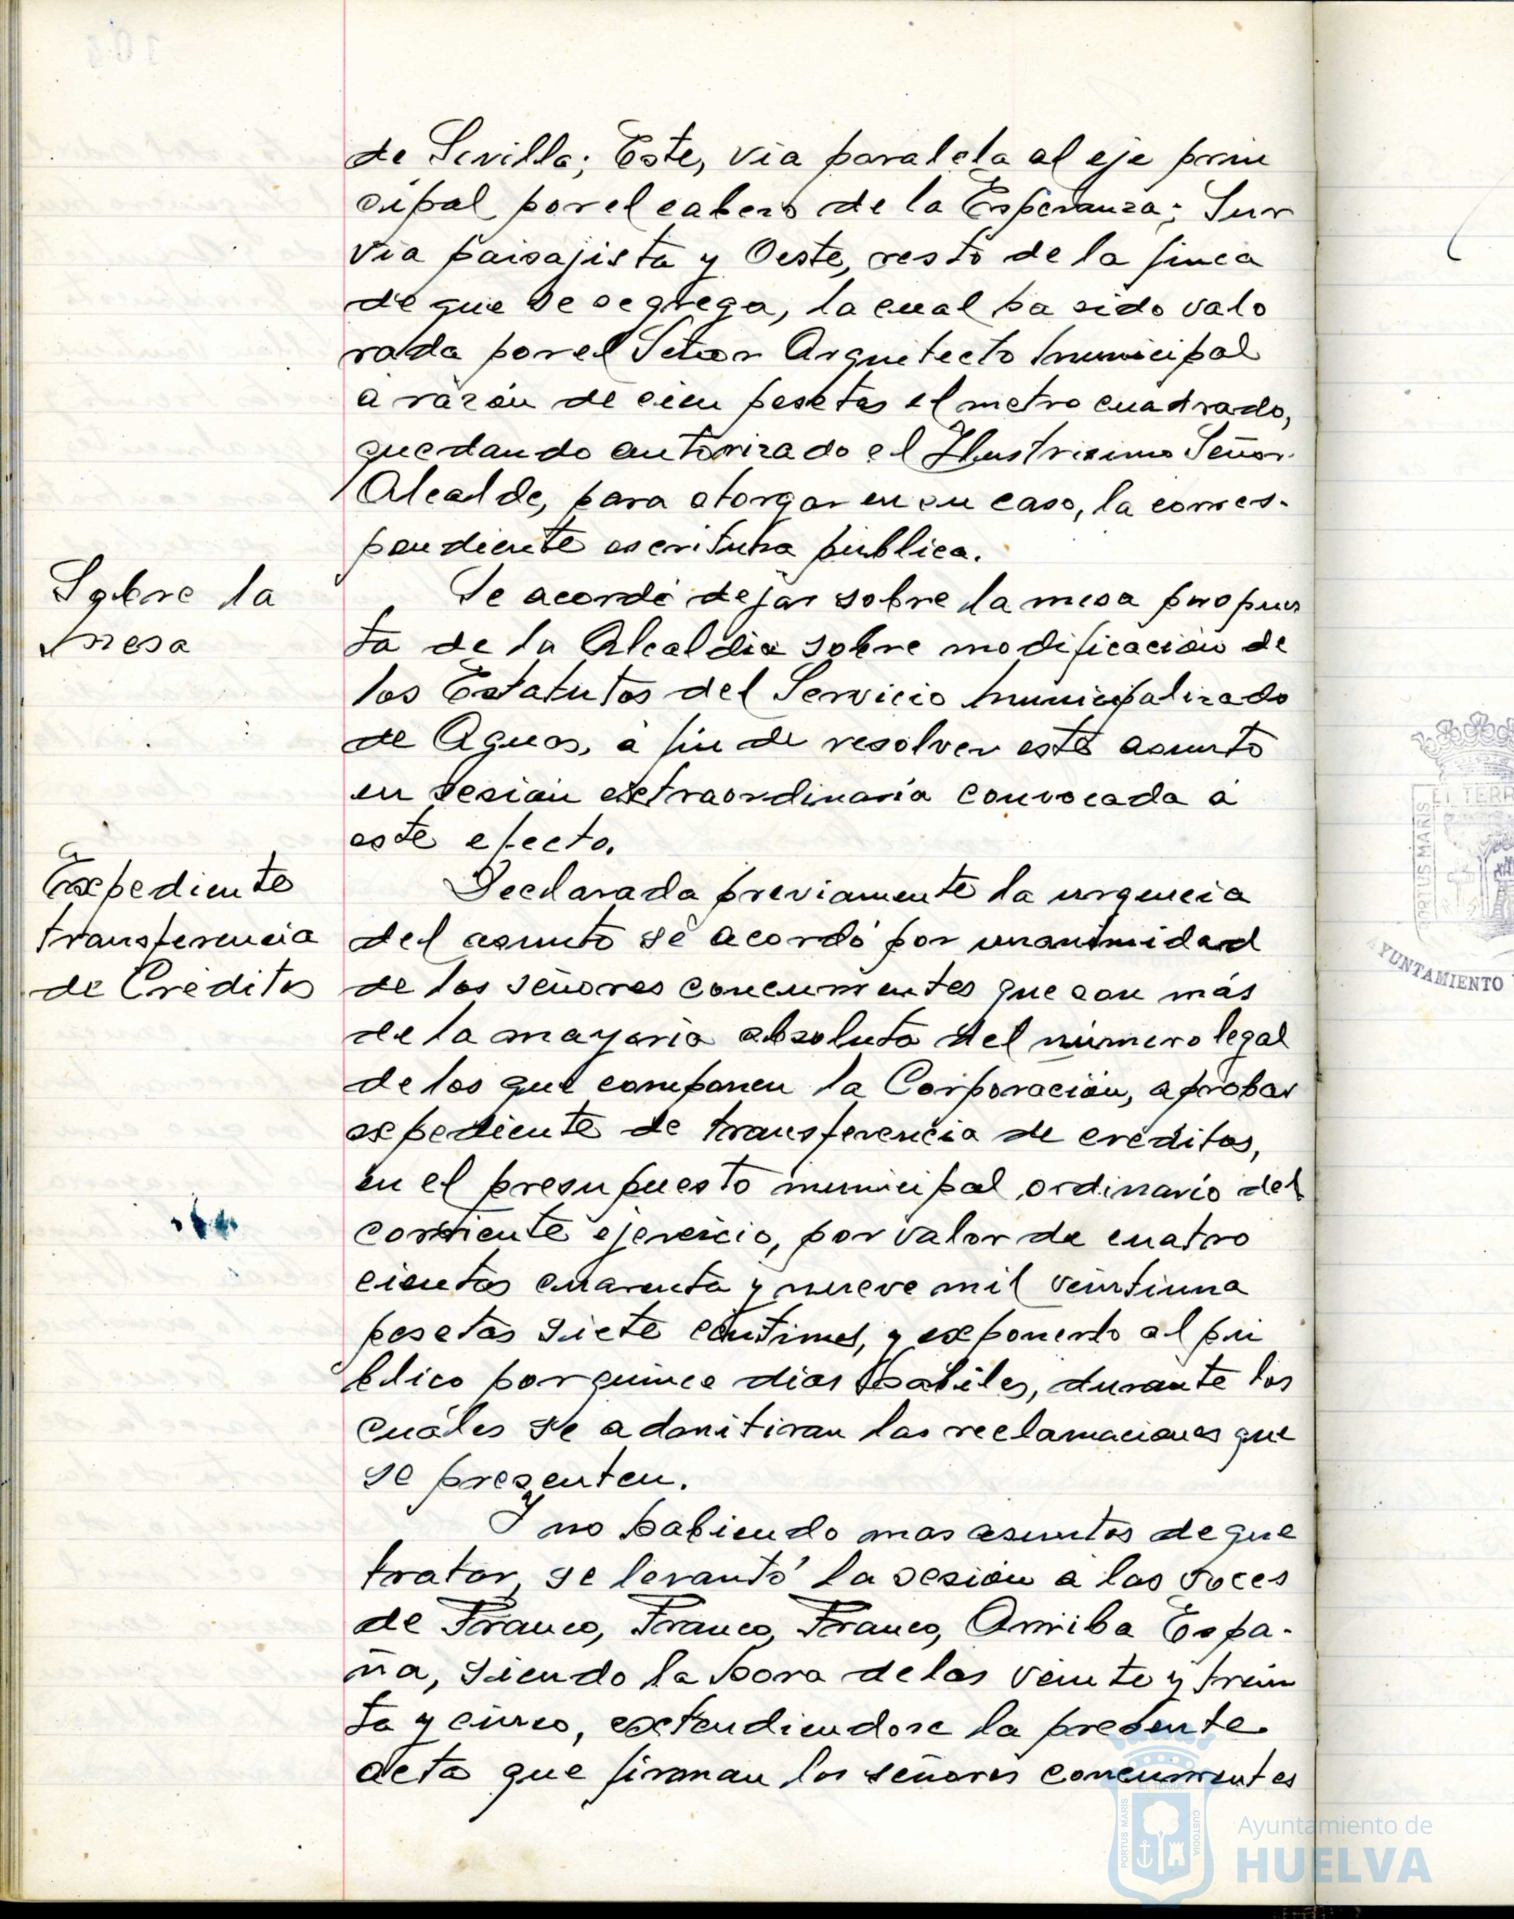 de Sevilla; Este, via paralela al eje prin
cipal por el cabezo de la Esperanza; Sur
via paisajista y Oeste, resto de la finca
de que se segrega, la cual ha sido valo
rada por el Señor Arquitecto municipal
a razón de cien pesetas el metro cuadrado,
quedando autorizado el Ilustrisimo Señor
Alcalde, para otorgar en su caso, la corres-
pondiente escritura pública.
Sobre la
mesa
Se acordó dejar sobre la mesa propues
ta de la Alcaldia sobre modificación de
los Estatutos del Servicio municipalizado
de Aguas, a fin de resolver este asunto
en sesión extraordinaria convocada a
este efecto.
Expediente
transferencia
de Créditos
Declarada previamente la urgencia
del asunto se acordó por unanimidad
de los señores concurrentes que son más
de la mayoria absoluta del número legal
de los que componen la Corporación, aprobar
expediente de transferencia de créditos,
en el presupuesto municipal ordinario del
corriente ejercicio, por valor de cuatro
cientas cuarenta y nueve mil veintiuna
pesetas siete centimos, y exponerlo al pú
blico por quince dias habiles, durante los
cuáles se admitiran las reclamaciones que
se presenten.
Y no habiendo mas asuntos de que
tratar, se levantó la sesión a las voces
de Franco, Franco, Franco, Arriba Espa-
ña, siendo la hora de las veinte y trein
ta y cinco, extendiendose la presente
acta que firman los señores concurrentes
PORTUS MARIS
ET TERR
AYUNTAMIENTO
PORTUS MARIS
ET TERRAE
CUSTODIA
Ayuntamiento de
HUELVA